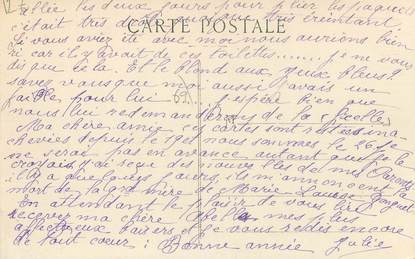 les deux jours pour plier les paquets
c'était très
CARTE POSTALE
Si vous aviez été avec moi nous aurions bien
car il y avait de ces toilettes...... je ne vous
dis que cela. Et le blond aux yeux bleus?
savez vous que moi aussi j'avais un
faible pour lui j'espère bien que
nous lui redemanderons de la ficelle
Ma chère amie, ces cartes sont restées ina-
chevées depuis le nous sommes le 26 je
me croyais en avance autant que je le
croyais. J'ai reçu des nouvelles de mes Parents
il y a quelques jours, ils m'annoncent la
mort de la grand'mère de Marie Louise
En attendant le plaisir de vous lire
recevez ma chère mes plus
affectueux baisers et je vous redis encore
de tout coeur: Bonne année Julie